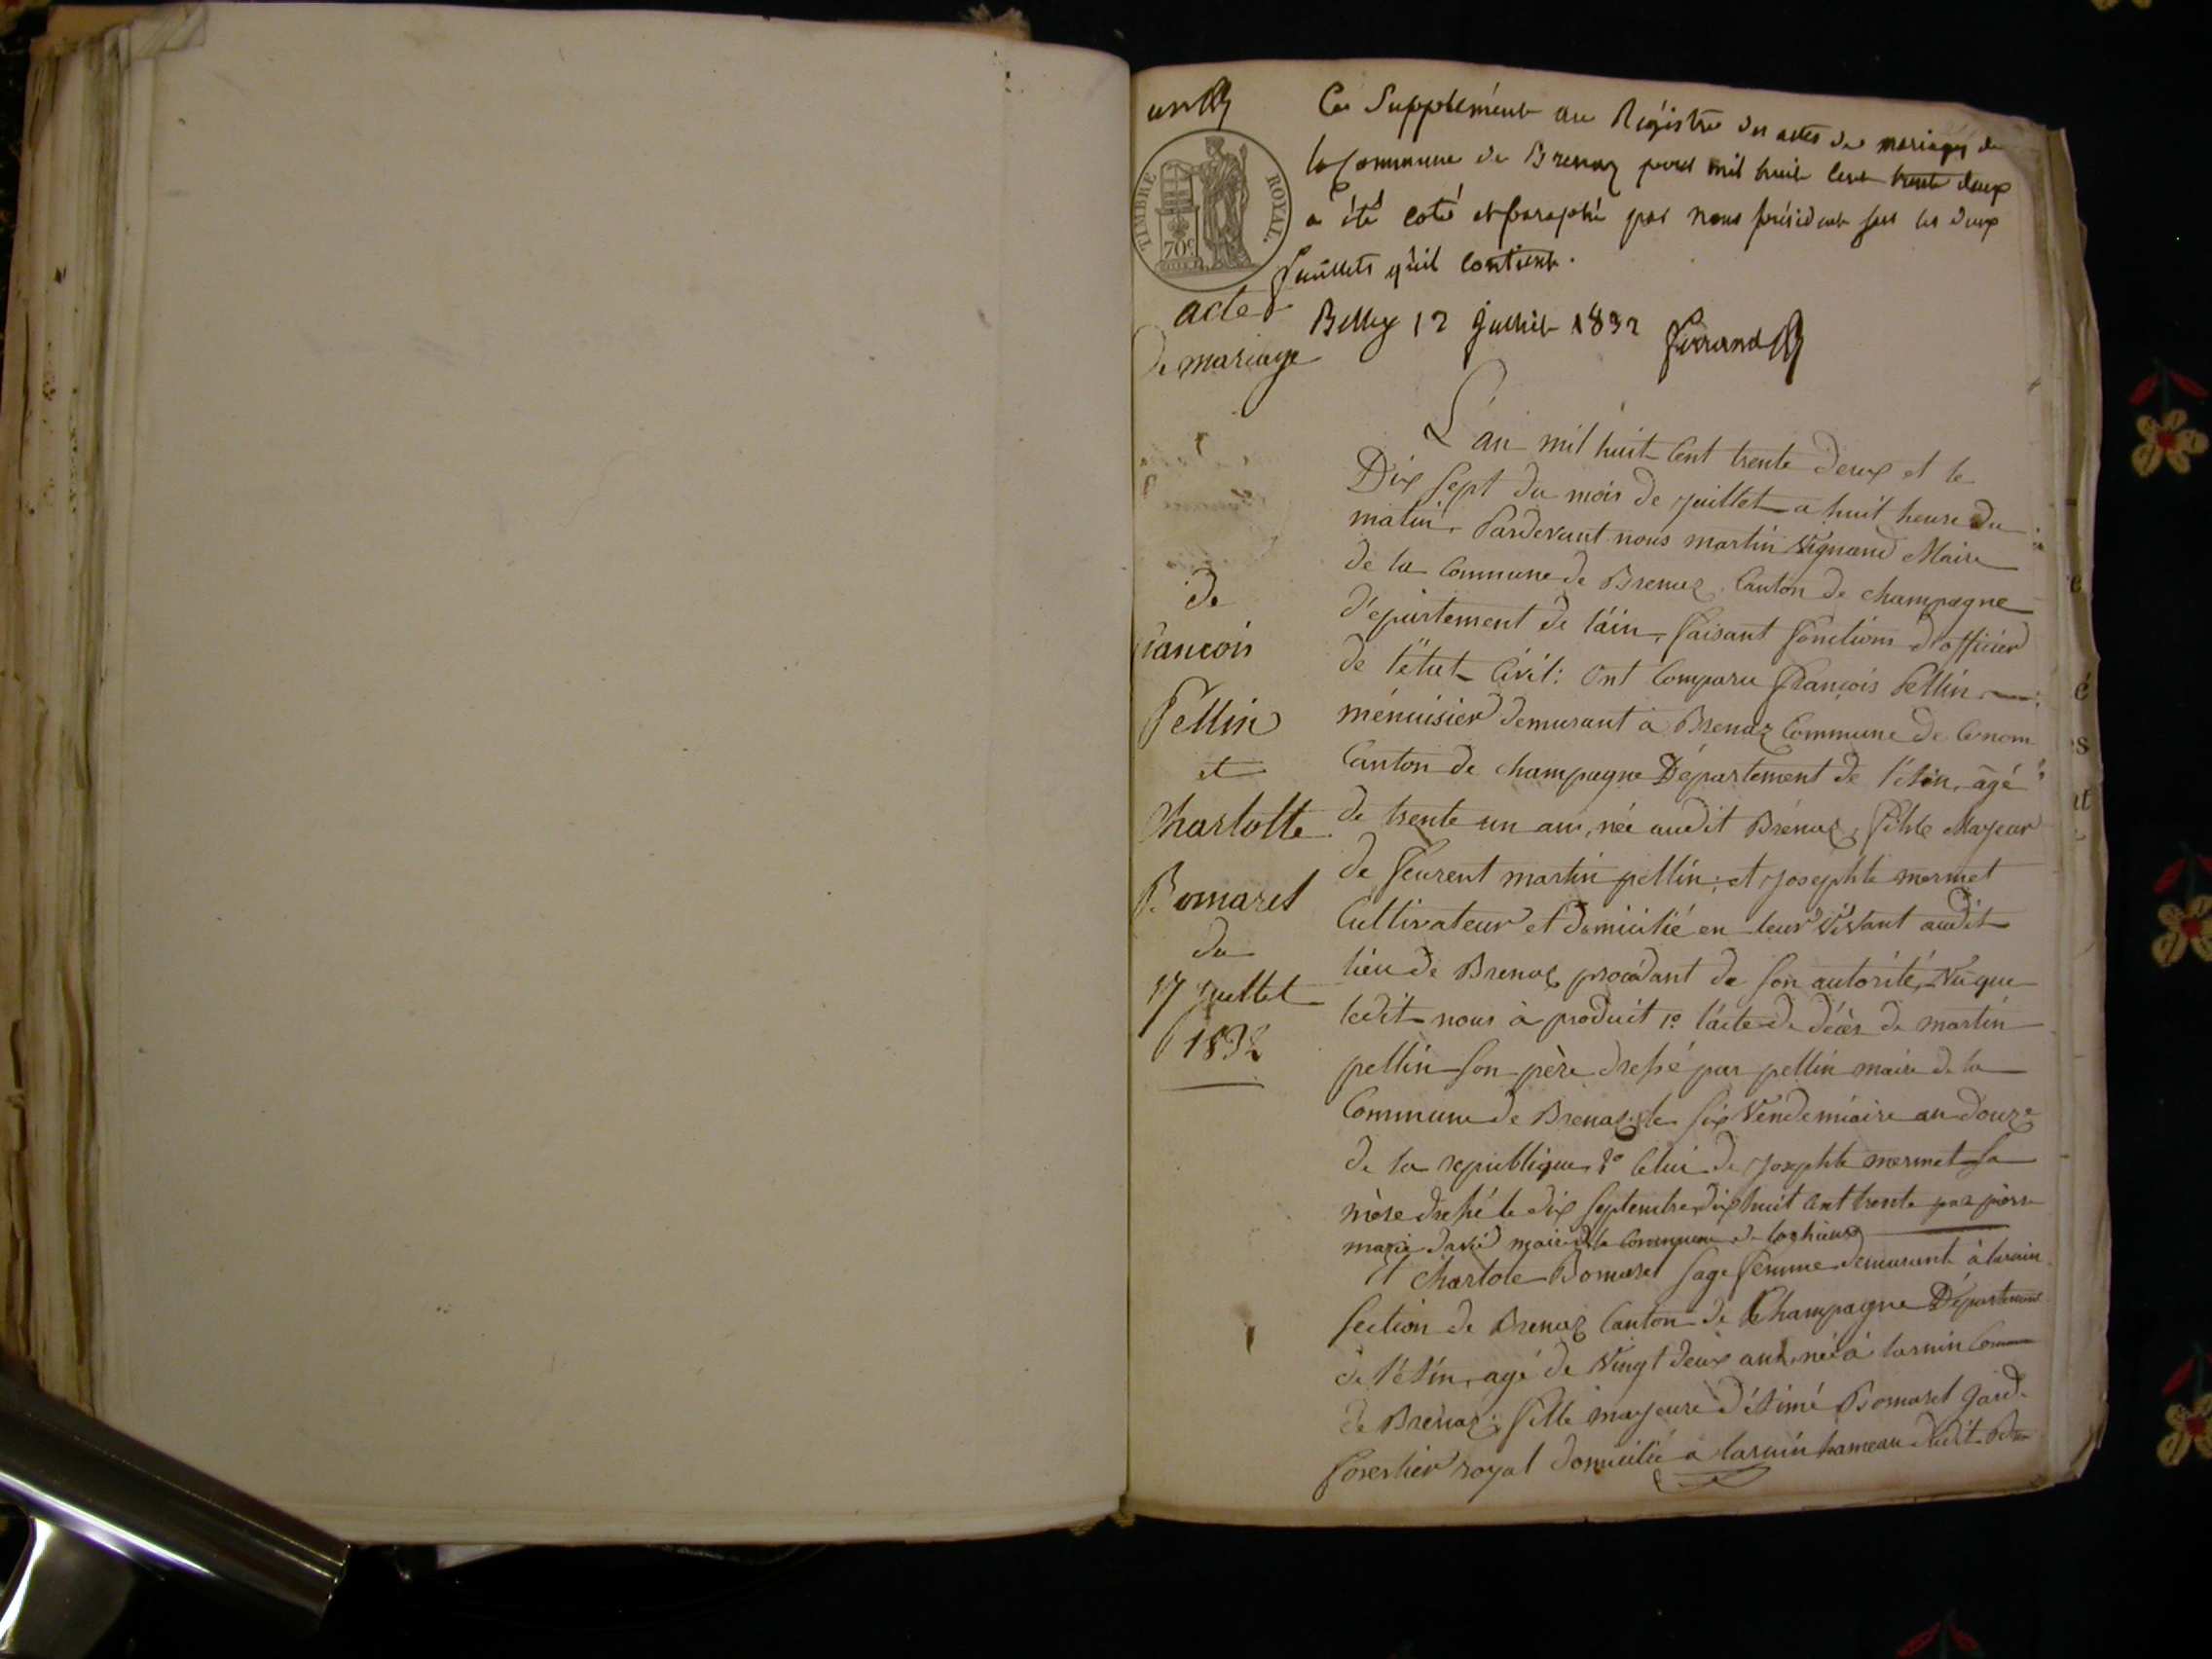 un
Ce Supplément au Régistre des actes de mariages de
la Commune de Brenaz pour mil huit cent trente deux
a été coté et paraphé par nous président sur les deux
feuillets qu'il contient.
Belley 12 Juillet 1832 Ferrand
TIMBRE ROYAL.
70c
acte
de mariage
de
françois
Pellin
et
Charlotte
Bomaret
du
17 juillet
1832
L'an mil huit Cent trente deux et le
Dix sept du mois de juillet a huit heure du
matin. Pardevant nous martin Vignand Maire
de la Commune de Brenaz Canton de champagne
département de l'ain, faisant fonctions d'officier
de l'état Civil: Ont Comparu François Pellin
ménuisier demurant à Brenaz Commune de Ce nom
Canton de champagne Département de l'Ain, âgé
de trente un ans, née audit Brénaz, fils Majeur
de feurent martin pellin; et josephte mermet
Cultivateur et domicilié en leur Vivant audit
lieu de Brenaz procédant de son autorité, Vu que
ledit nous à produit 1o l'acte de décès de martin
pellin son père dressé par pellin maire de la
Commune de Brenaz le six Vendemiaire an douze
de la republique 2o Celui de josephte mermet sa
mère dressé le dix septembre dix huit cent trente par pierre
marie david maire de la Commune de lochieux
Et Charlote Bomaret sage femme demurant à larnin
section de Brenaz Canton de Champagne Département
de l'Ain, agé de Vingt deux ans, née à larnin Comm
de Brenaz, fille majeure d'Aimé Bomaret garde
forestier royal domicilié a larnin hameau dudit Bre